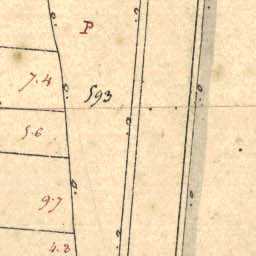 P
7.4
593
5.6
9.7
4.3